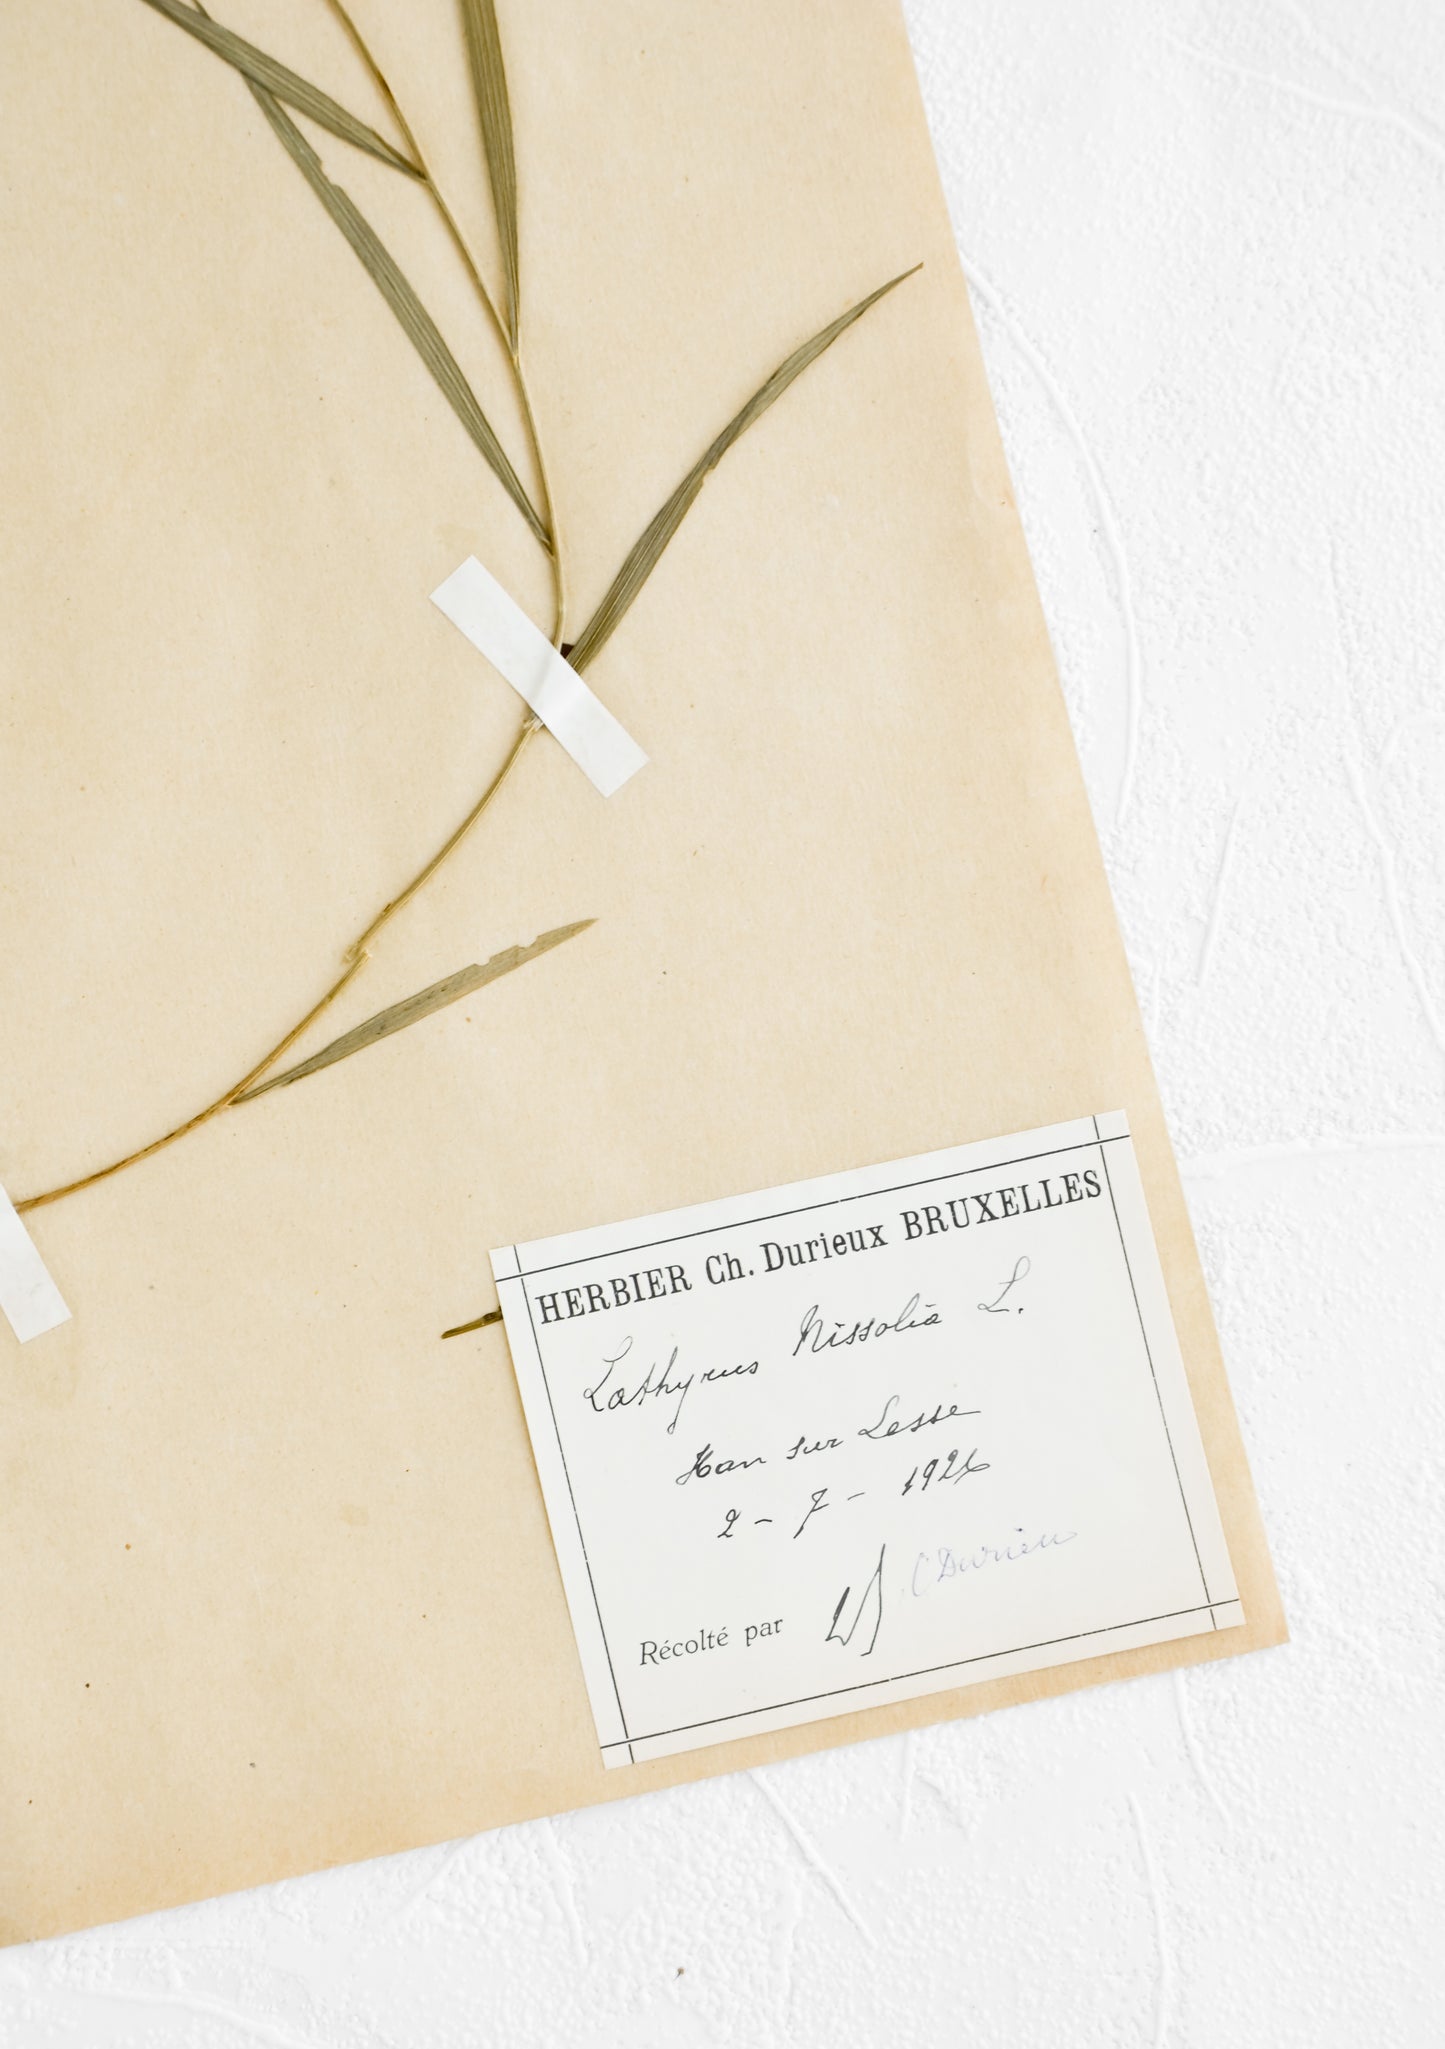 HERBIER Ch. Durieux BRUXELLES
Lathyrus Nissolia L.
Han sur Lesse
2 - 7 - 1926
Récolté par C Durieu